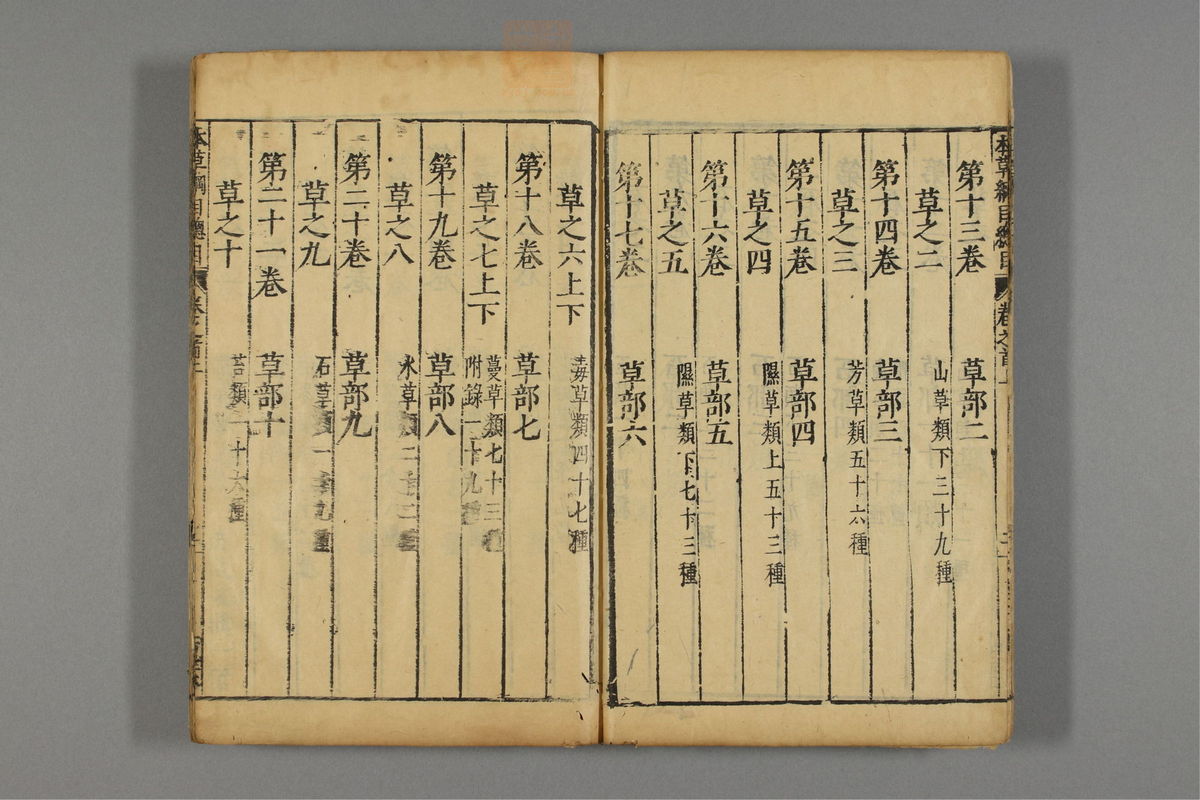 本草綱目總目 卷之首上
第十三卷 草部二
草之二 山草類下三十九種
第十四卷 草部三
草之三 芳草類五十六種
第十五卷 草部四
草之四 隰草類上五十三種
第十六卷 草部五
草之五 隰草類下七十三種
第十七卷 草部六
草之六上下 毒草類四十七種
第十八卷 草部七
草之七上下 蔓草類七十三種
附錄一十九種
第十九卷 草部八
草之八 水草類二十二種
第二十卷 草部九
草之九 石草類一十九種
第二十一卷 草部十
草之十 苔類一十六種
本草綱目總目